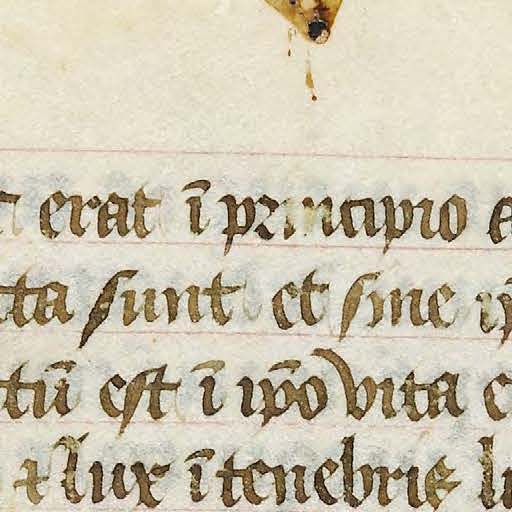 erat ī principio
ta sunt et sine
tū est ī ip̄o vita
⁊ lux ī tenebris